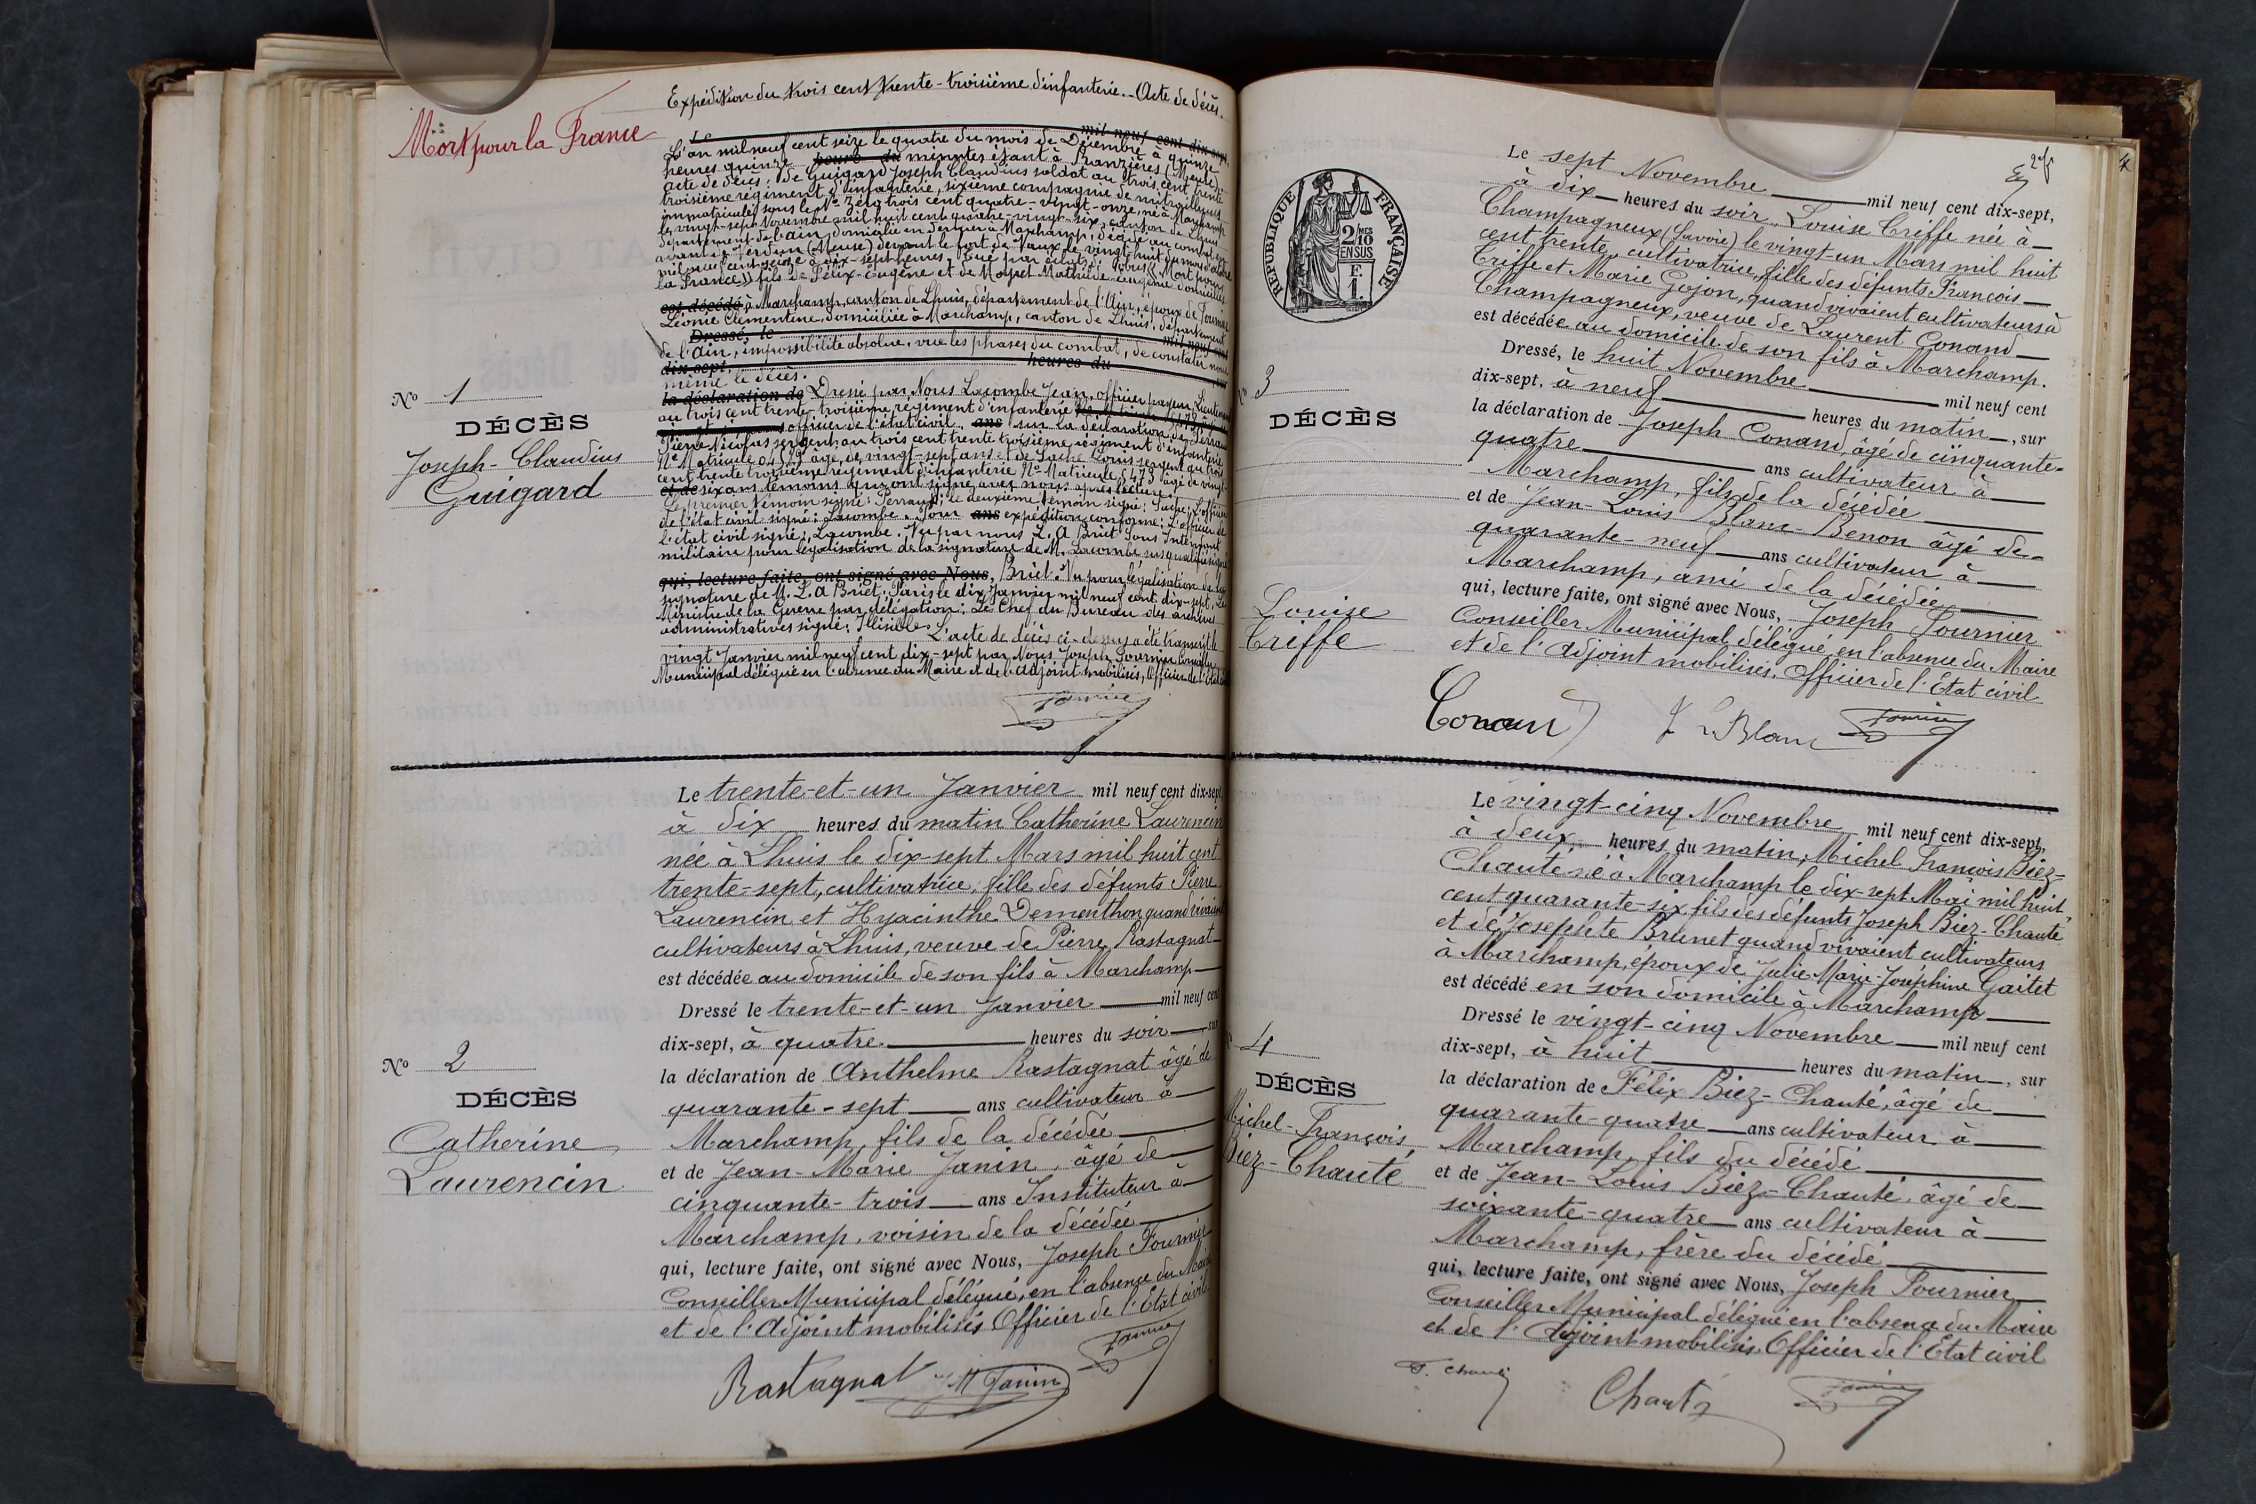 Mort pour la France
Expédition du trois cent trente-troisième d'infanterie. Acte de décès.
Le mil neuf cent dix-sept,
L'an mil neuf cent seize le quatre du mois de Décembre à quinze
heures quinze minutes étant à Ranzières (Meuse)
acte de décès: de Guigard Joseph Claudius soldat au trois cent trente
troisième régiment d'infanterie, sixième compagnie de mitrailleuses
immatriculé sous le No zéro trois cent quatre-vingt-onze, né à Marchamp
le vingt-sept Novembre mil huit cent quatre-vingt-six, canton de Lhuis
département de l'Ain, domicilié en dernier à Marchamp, décédé au combat en
avant de Verdun (Meuse) devant le fort de Vaux le vingt-huit du mois d'
mil neuf cent seize à dix-sept heures. Tué par éclats d'obus "Mort pour
la France" fils de Félix-Eugène et de Mathilde Eugénie domiciliés
est décédé à Marchamp, canton de Lhuis, département de l'Ain, époux de Fournier
Léonie Clémentine, domiciliée à Marchamp, canton de Lhuis, département
Dressé, le mil neuf cent
de l'Ain, impossibilité absolue, vu les phases du combat, de constater nous
dix-sept, heures du
même le décès.
la déclaration de Dressé par Nous Lacombe Jean, officier payeur, Lieutenant
au trois cent trente-troisième régiment d'infanterie
officier de l'état civil, ans sur la déclaration de Perraud
Pierre Nicolas sergent au trois cent trente troisième régiment d'infanterie
No Matricule âgé de vingt-sept ans et de Louis sergent au trois
cent trente troisième régiment d'infanterie No Matricule âgé de vingt-
et de six ans témoins qui ont signé avec nous après lecture.
Le premier témoin signé: Perraud; le deuxième témoin signé: L'officier
de l'état civil signé: Lacombe. Pour ans expédition conforme: L'officier de
l'état civil signé: Lacombe. Vu par nous L. A Briet Sous Intendant
militaire pour légalisation de la signature de M. Lacombe susqualifié signé
qui, lecture faite, ont signé avec Nous, Briet. Vu pour légalisation de la
signature de M. L. A Briet, Paris le dix Janvier mil neuf cent dix-sept, Le
Ministre de la Guerre par délégation: Le Chef du Bureau des archives
administratives signé: Illisible. L'acte de décès ci-dessus a été transcrit le
vingt Janvier mil neuf cent dix-sept par Nous Joseph Fournier Conseiller
Municipal délégué en l'absence du Maire et de l'Adjoint mobilisés, Officier de l'Etat
Fournier
No 1
DÉCÈS
Joseph-Claudius
Guigard
Le trente-et-un Janvier mil neuf cent dix-sept
à dix heures du matin Catherine Laurencin
née à Lhuis le dix-sept Mars mil huit cent
trente-sept, cultivatrice, fille des défunts Pierre
Laurencin et Hyacinthe Dementhon quand vivaient
cultivateurs à Lhuis, veuve de Pierre Rastagnat
est décédée au domicile de son fils à Marchamp
Dressé le trente-et-un Janvier mil neuf cent
dix-sept, à quatre heures du soir, sur
la déclaration de Anthelme Rastagnat âgé de
quarante-sept ans cultivateur à
Marchamp, fils de la décédée
et de Jean-Marie Janin, âgé de
cinquante-trois ans Instituteur à
Marchamp, voisin de la décédée
qui, lecture faite, ont signé avec Nous, Joseph Fournier
Conseiller Municipal délégué, en l'absence du Maire
et de l'Adjoint mobilisés Officier de l'Etat civil
Rastagnat M Janin Fournier
No 2
DÉCÈS
Catherine
Laurencin
2
RÉPUBLIQUE FRANÇAISE
2/10 MES
EN SUS
F.
1.
Le sept Novembre mil neuf cent dix-sept,
à dix heures du soir Louise Criffe née à
Champagneux (Savoie) le vingt-un Mars mil huit
cent trente, cultivatrice, fille des défunts François
Criffe et Marie Gojon, quand vivaient cultivateurs à
Champagneux, veuve de Laurent Conand
est décédée au domicile de son fils à Marchamp.
Dressé, le huit Novembre mil neuf cent
dix-sept, à neuf heures du matin, sur
la déclaration de Joseph Conand, âgé de cinquante-
quatre ans cultivateur à
Marchamp, fils de la décédée
et de Jean-Louis Blanc-Benon âgé de
quarante-neuf ans cultivateur à
Marchamp, ami de la décédée
qui, lecture faite, ont signé avec Nous, Joseph Fournier
Conseiller Municipal délégué en l'absence du Maire
et de l'Adjoint mobilisés, Officier de l'Etat civil
Conand J L Blanc Fournier
3
DÉCÈS
Louise
Criffe
Le vingt-cinq Novembre mil neuf cent dix-sept,
à deux heures du matin, Michel François Biez-
Chauté né à Marchamp le dix-sept Mai mil huit
cent quarante-six fils des défunts Joseph Biez-Chauté
et de Josephte Brunet quand vivaient cultivateurs
à Marchamp, époux de Julie Marie-Joséphine Gaitet
est décédé en son domicile à Marchamp
Dressé le vingt-cinq Novembre mil neuf cent
dix-sept, à huit heures du matin, sur
la déclaration de Félix Biez-Chauté, âgé de
quarante-quatre ans cultivateur à
Marchamp, fils du décédé
et de Jean-Louis Biez-Chauté, âgé de
soixante-quatre ans cultivateur à
Marchamp, frère du décédé
qui, lecture faite, ont signé avec Nous, Joseph Fournier
Conseiller Municipal délégué en l'absence du Maire
et de l'Adjoint mobilisés. Officier de l'Etat civil
Chauté Fournier
4
DÉCÈS
Michel-François
Biez-Chauté